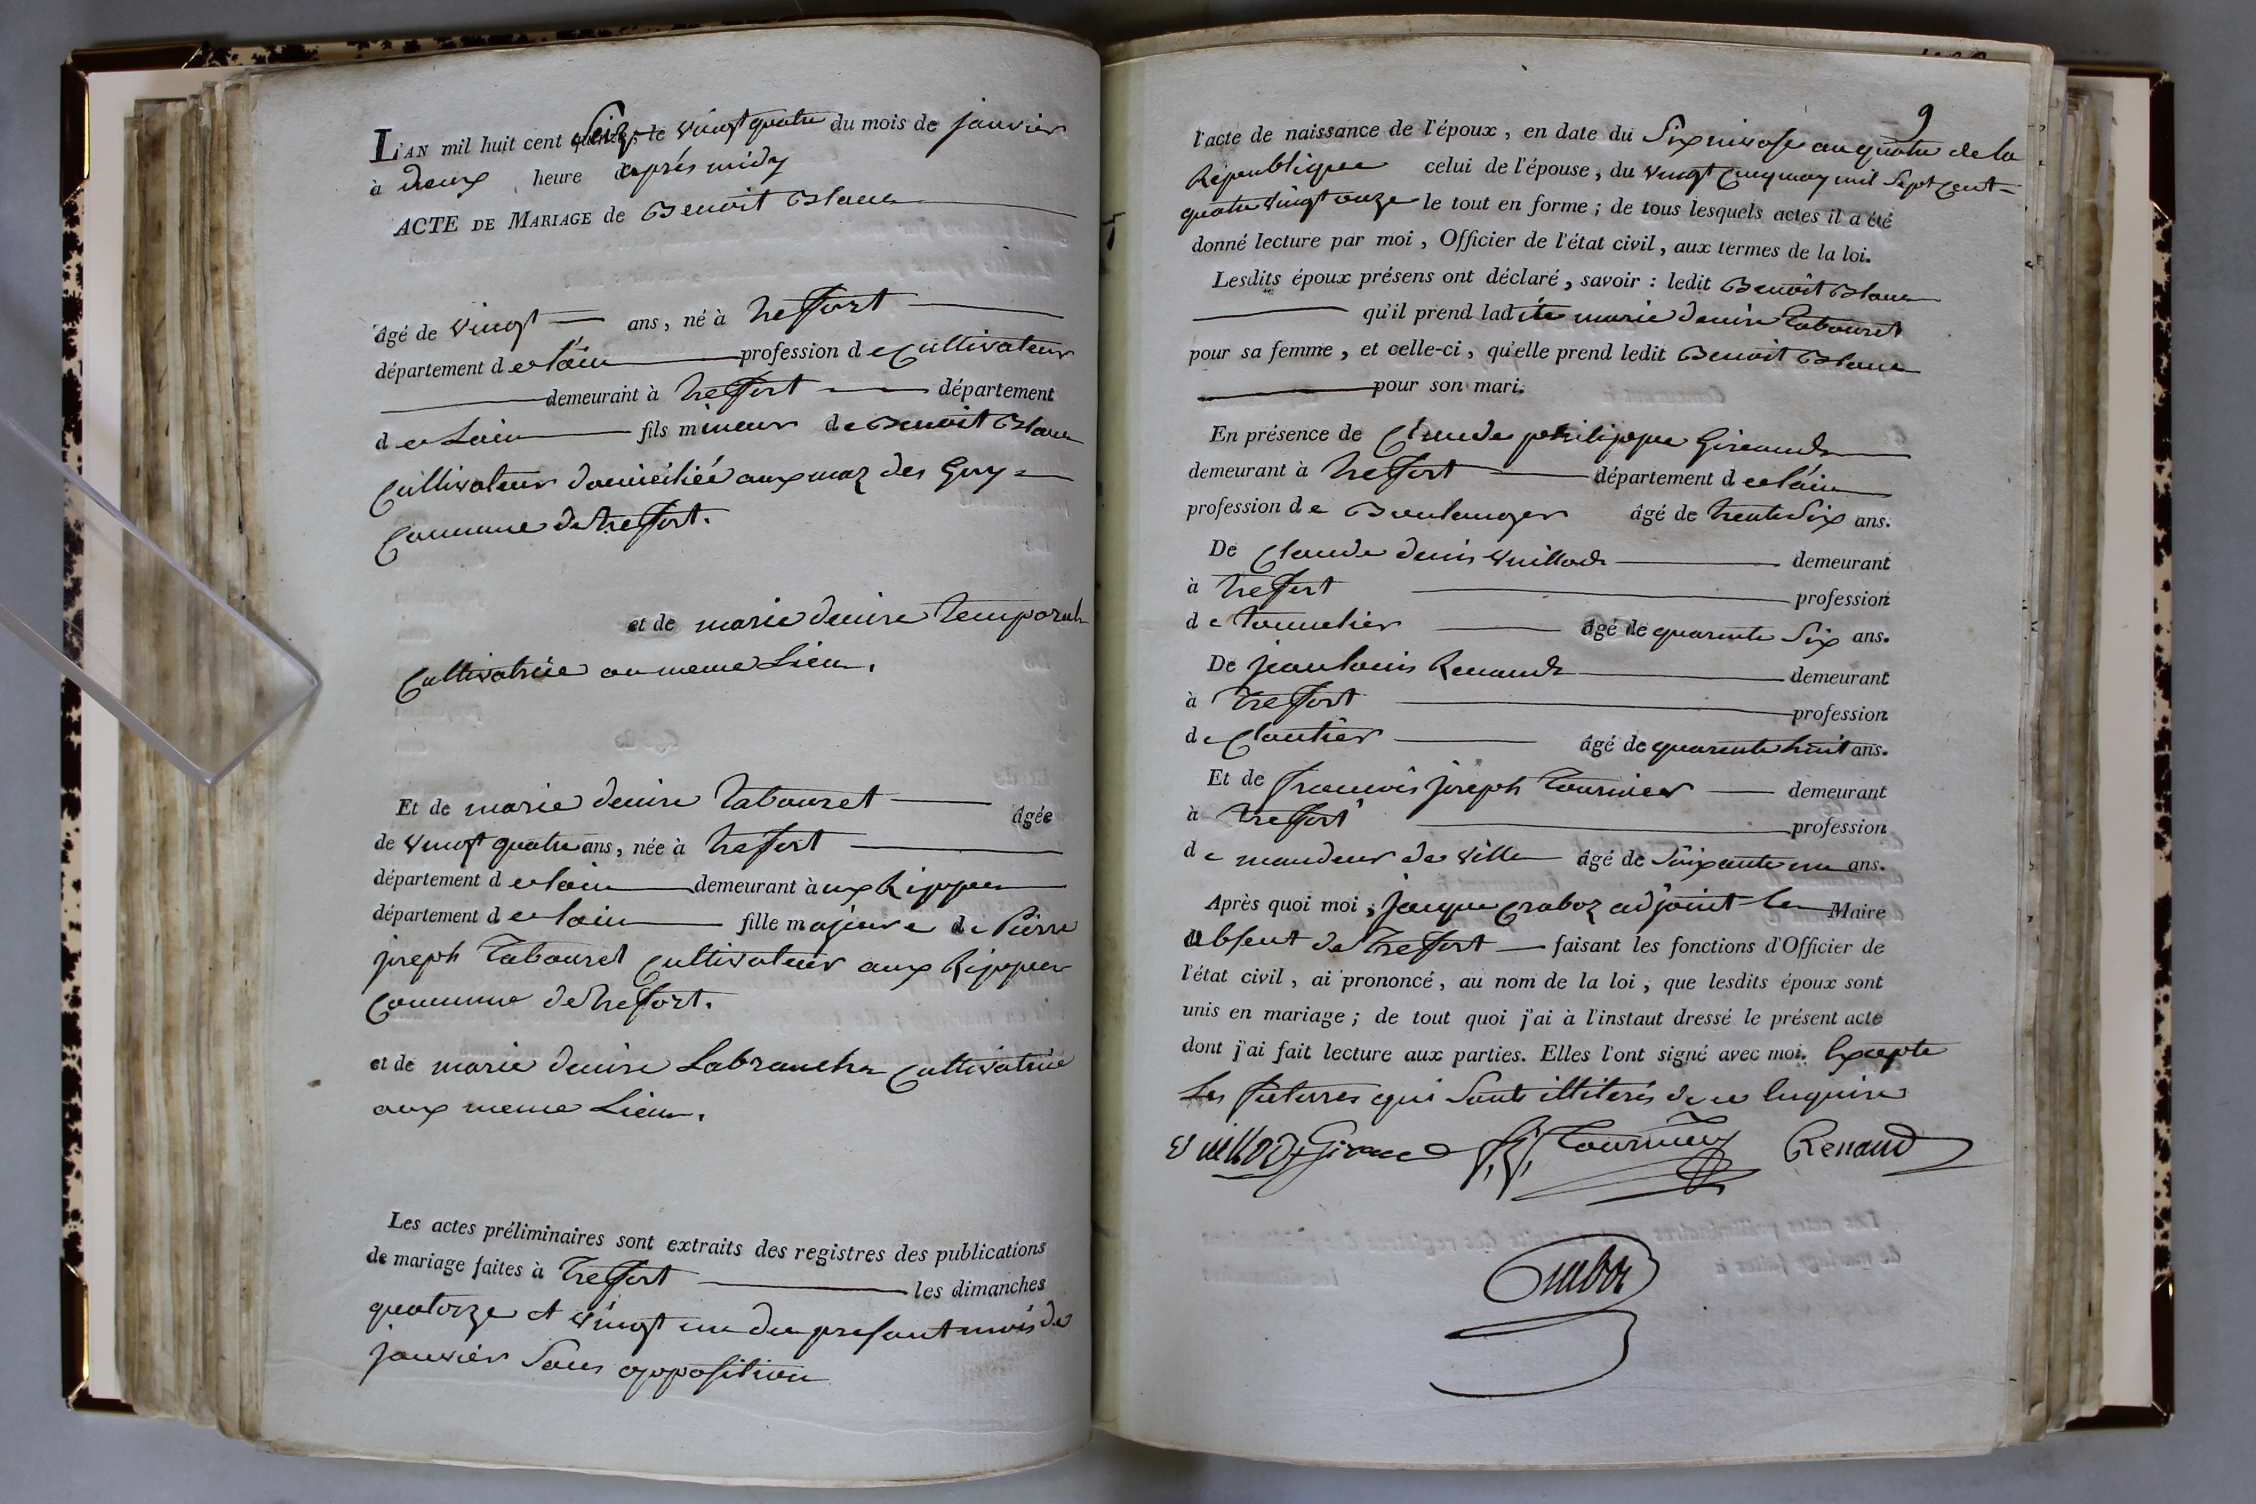 L'AN mil huit cent seize, le vingt quatre du mois de janvier
à deux heure après midy
ACTE DE MARIAGE de Benoit Blanc
âgé de vingt ans, né à treffort
département de l'ain profession de Cultivateur
demeurant à treffort département
de Lain fils mineur de Benoit Blanc
Cultivateur domiciliée aux maz des Guy
Commune de treffort.
et de marie denise temporal
Cultivatrice au meme Lieu.
Et de marie denise tabouret âgée
de vingt quatre ans, née à treffort
département de lain demeurant à aux Rippes
département de lain fille majeure de Pierre
joseph Tabouret Cultivateur aux Rippes
Commune de treffort.
et de marie denise Labranche Cultivatrice
aux meme Lieu.
Les actes préliminaires sont extraits des registres des publications
de mariage faites à Treffort les dimanches
quatorze et vingt un du presant mois de
janvier Sans opposition
9
l'acte de naissance de l'époux, en date du Six nivose an quatre de la
République celui de l'épouse, du vingt Cinq may mil Sept Cent
quatre vingt onze le tout en forme; de tous lesquels actes il a été
donné lecture par moi, Officier de l'état civil, aux termes de la loi.
Lesdits époux présens ont déclaré, savoir : ledit Benoit Blanc
qu'il prend ladite marie denise tabouret
pour sa femme, et celle-ci, qu'elle prend ledit Benoit Blanc
pour son mari.
En présence de Claude philippe Giraud
demeurant à treffort département de l'ain
profession de Boulanger âgé de trente Six ans.
De Claude denis vuillod demeurant
à treffort profession
de tonnelier âgé de quarante Six ans.
De jean louis Renaud demeurant
à treffort profession
de Cloutier âgé de quarante huit ans.
Et de François joseph tournier demeurant
à treffort profession
de mandeur de ville âgé de Soixante un ans.
Après quoi moi, jaque craboz adjoint le Maire
absent de Treffort faisant les fonctions d'Officier de
l'état civil, ai prononcé, au nom de la loi, que lesdits époux sont
unis en mariage; de tout quoi j'ai à l'instaut dressé le présent acte
dont j'ai fait lecture aux parties. Elles l'ont signé avec moi. Excepte
Les futurres qui Sont illiterés de ce Enquire
vuillod Giraud f. j. Tournier Renaud
Craboz